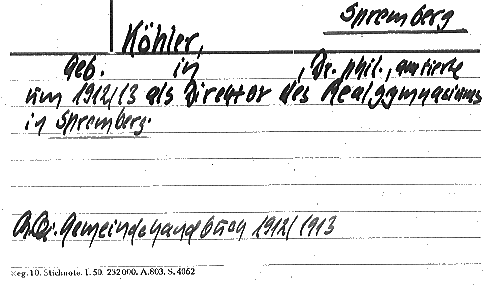 Spremberg
Köhler,
Geb. in , Dr. phil., amtierte
um 1912/13 als Direktor des Realgymnasiums
in Spremberg.
Gemeindehandbuch 1912/1913
Reg. 10. Stichnote. I. 50. 232000. A.803. S. 4052